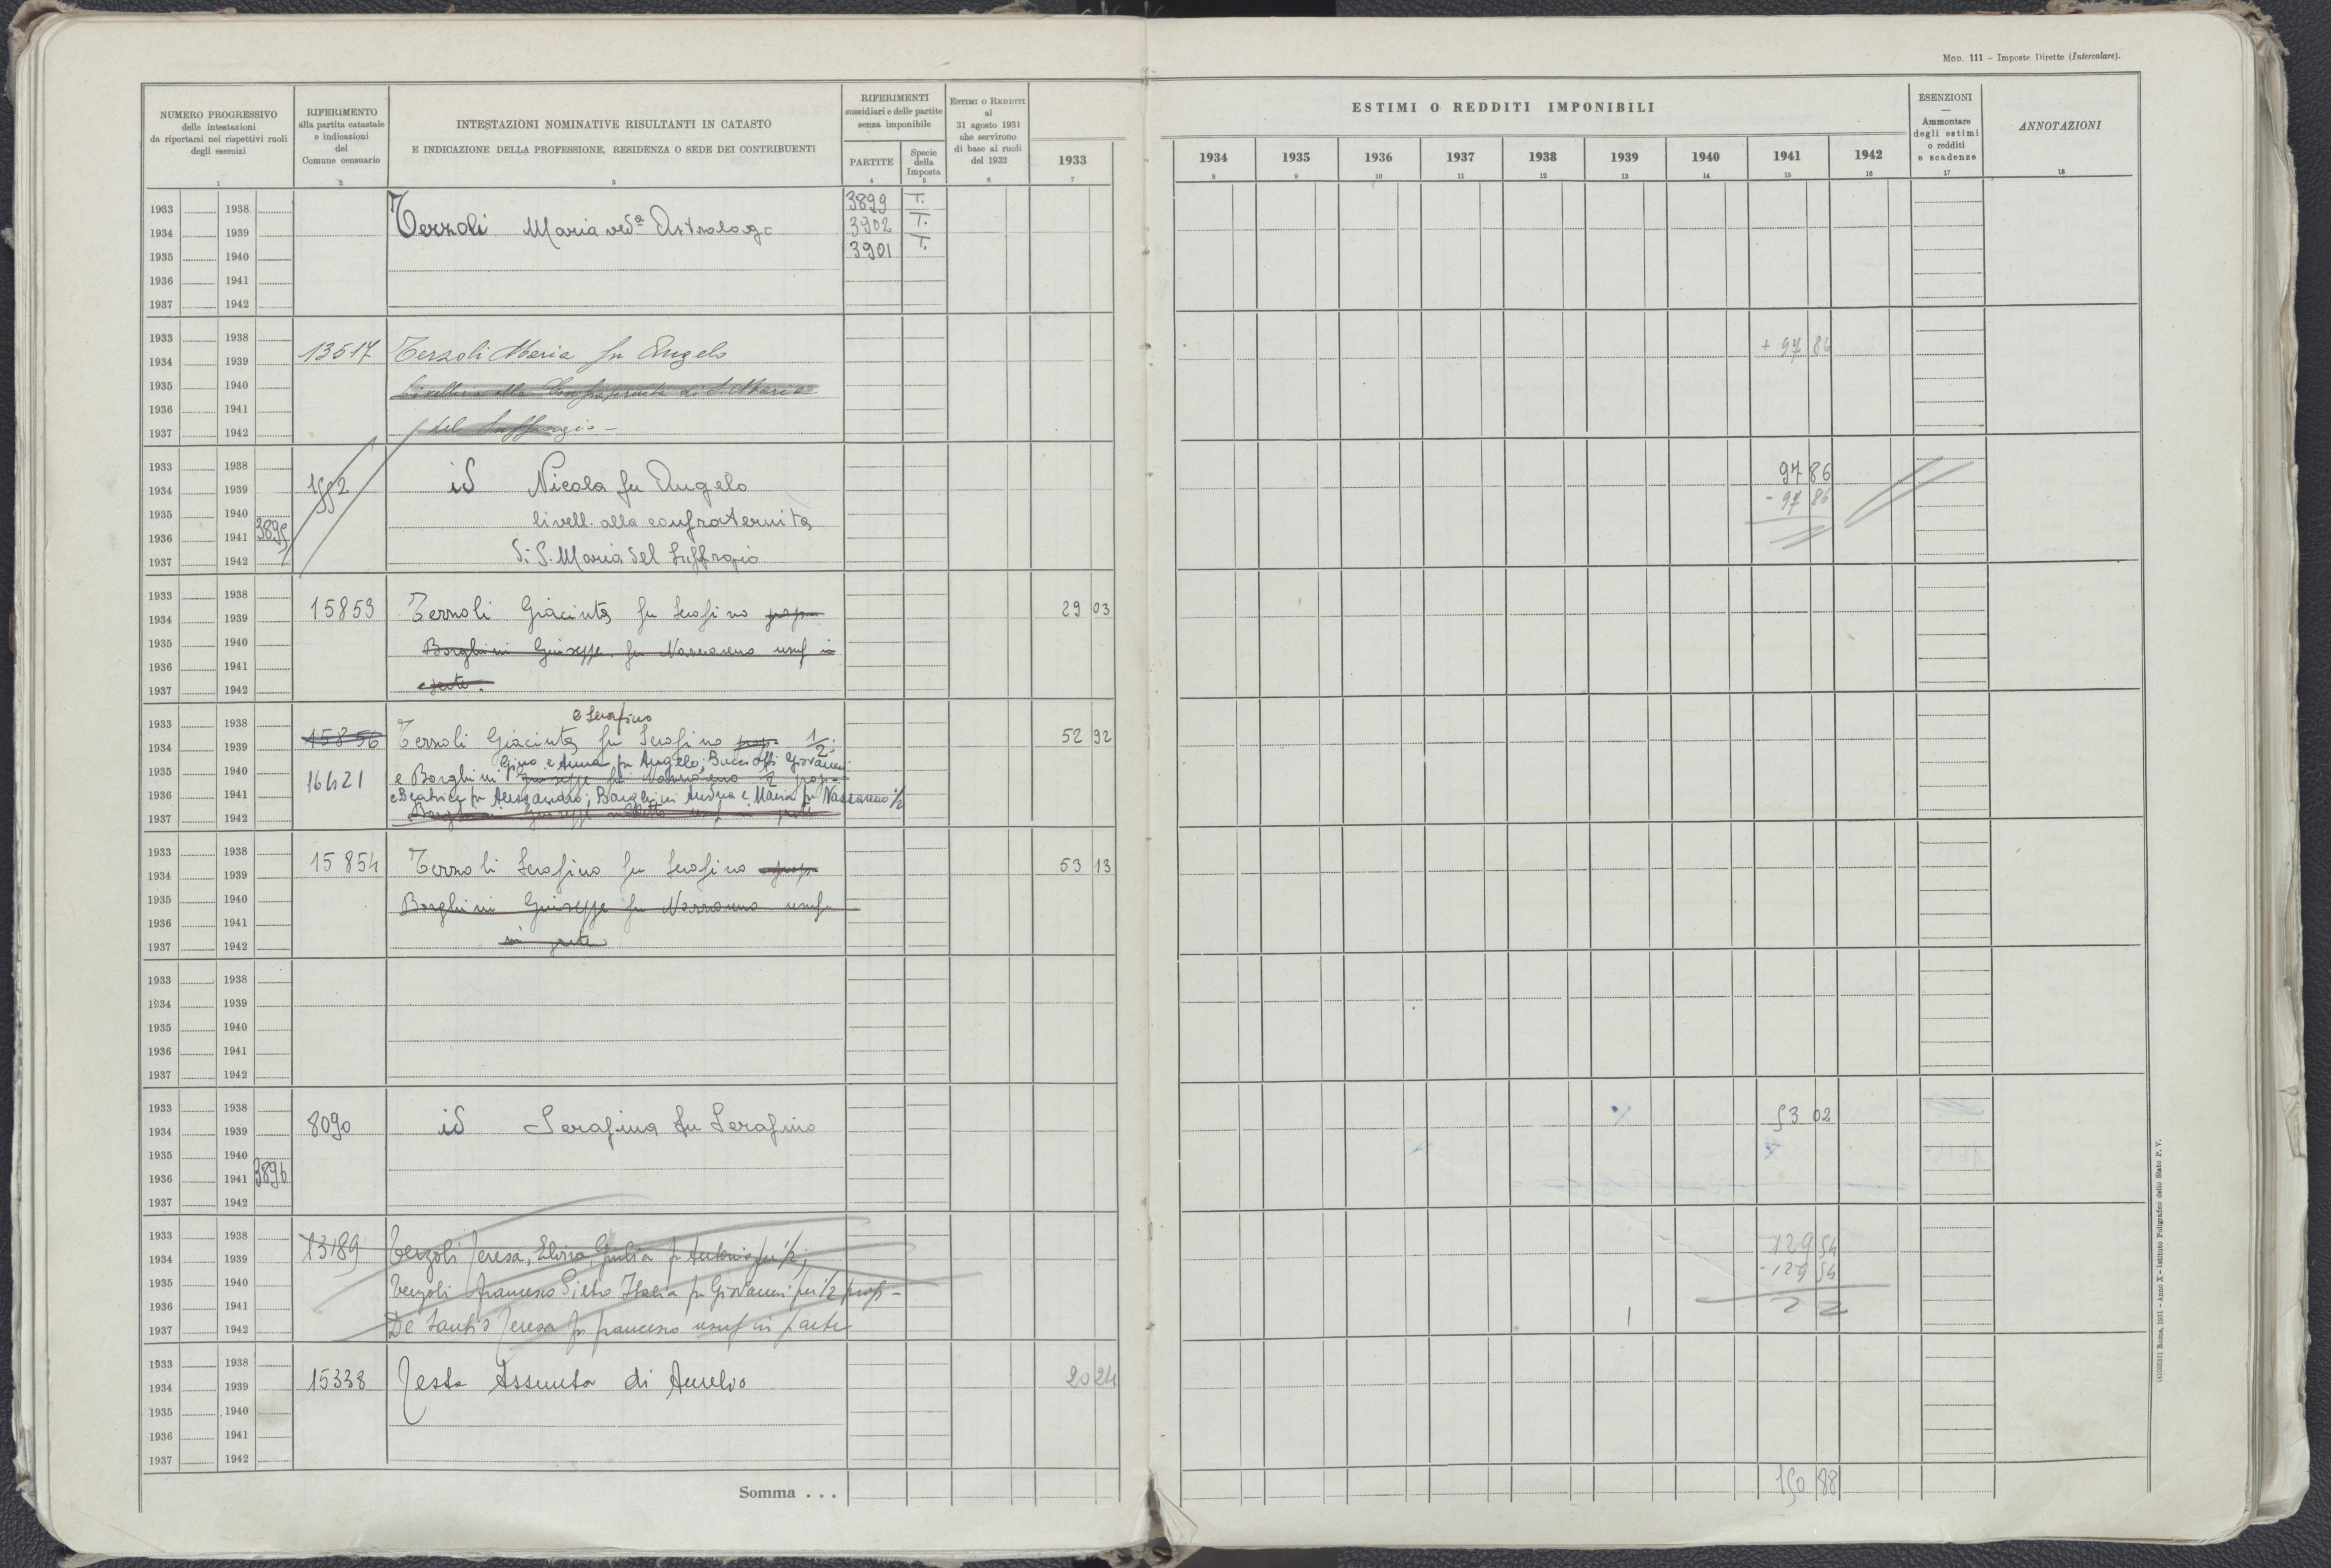 Mod. 111 – Imposte Dirette (Intercalare).
NUMERO PROGRESSIVO
delle intestazioni
da riportarsi nei rispettivi ruoli
degli esercizi
1
RIFERIMENTO
alla partita catastale
e indicazioni
del
Comune censuario
2
INTESTAZIONI NOMINATIVE RISULTANTI IN CATASTO
E INDICAZIONE DELLA PROFESSIONE, RESIDENZA O SEDE DEI CONTRIBUENTI
3
RIFERIMENTI
sussidiari e delle partite
senza imponibile
PARTITE
4
Specie
della
Imposta
5
Estimi o Redditi
al
31 agosto 1931
che servirono
di base ai ruoli
del 1932
6
1933
7
ESTIMI O REDDITI IMPONIBILI
1934 1935 1936 1937 1938 1939 1940 1941 1942
8 9 10 11 12 13 14 15 16
ESENZIONI
—
Ammontare
degli estimi
o redditi
e scadenze
17
ANNOTAZIONI
18
1933 1938 3899 T.
1934 1939 Terzoli Maria ved.a Astrologo 3902 T.
1935 1940 3901 T.
1936 1941
1937 1942
1933 1938
1934 1939 13517 Terzoli Maria fu Angelo + 97 86
1935 1940 Livellaria alla Confraternita di S. Maria
1936 1941
1937 1942 del Suffragio –
1933 1938 97 86
1934 1939 1552 id Nicola fu Angelo - 97 86
1935 1940 livell. alla confraternita
1936 1941 3895
1937 1942 di S. Maria del Suffragio
1933 1938
1934 1939 15853 Terzoli Giacinta fu Serafino prop. 29 03
1935 1940 Borghini Giuseppe fu Nazzareno usuf in
1936 1941
1937 1942 parte.
1933 1938 e Serafino
1934 1939 15856 Terzoli Giacinta fu Serafino prop. 1/2; 52 92
Gino e Anna fu Angelo; Giovanni
1935 1940 16421 e Borghini Giuseppe fu Nazzareno 1/2 prop.
1936 1941 e Beatrice fu Alessandro; Borghini Andrea e Maria fu Nazzareno 1/2
1937 1942 Borghini Giuseppe suddetto usuf in parte
1933 1938
1934 1939 15854 Terzoli Serafino fu Serafino prop. 53 13
1935 1940 Borghini Giuseppe fu Nazzareno usuf.
1936 1941
1937 1942 in parte
1933 1938
1934 1939
1935 1940
1936 1941
1937 1942
1933 1938
1934 1939 8090 id Serafina fu Serafino 53 02
1935 1940
1936 1941 3896
1937 1942
1933 1938 129 54
1934 1939 13189 Terzoli Teresa, Elvira, Giulia fu Antonio per 1/2; - 129 54
1935 1940 Terzoli Francesco Pietro Italia fu Giovanni per 1/2 prop –
1936 1941
1937 1942 De Santis Teresa fu Francesco usuf in parte
1933 1938
1934 1939 15338 Testa Assunta di Aurelio 20 24
1935 1940
1936 1941
1937 1942
Somma . . . 150 88
(4103531) Roma, 1931 – Anno X – Istituto Poligrafico dello Stato P. V.